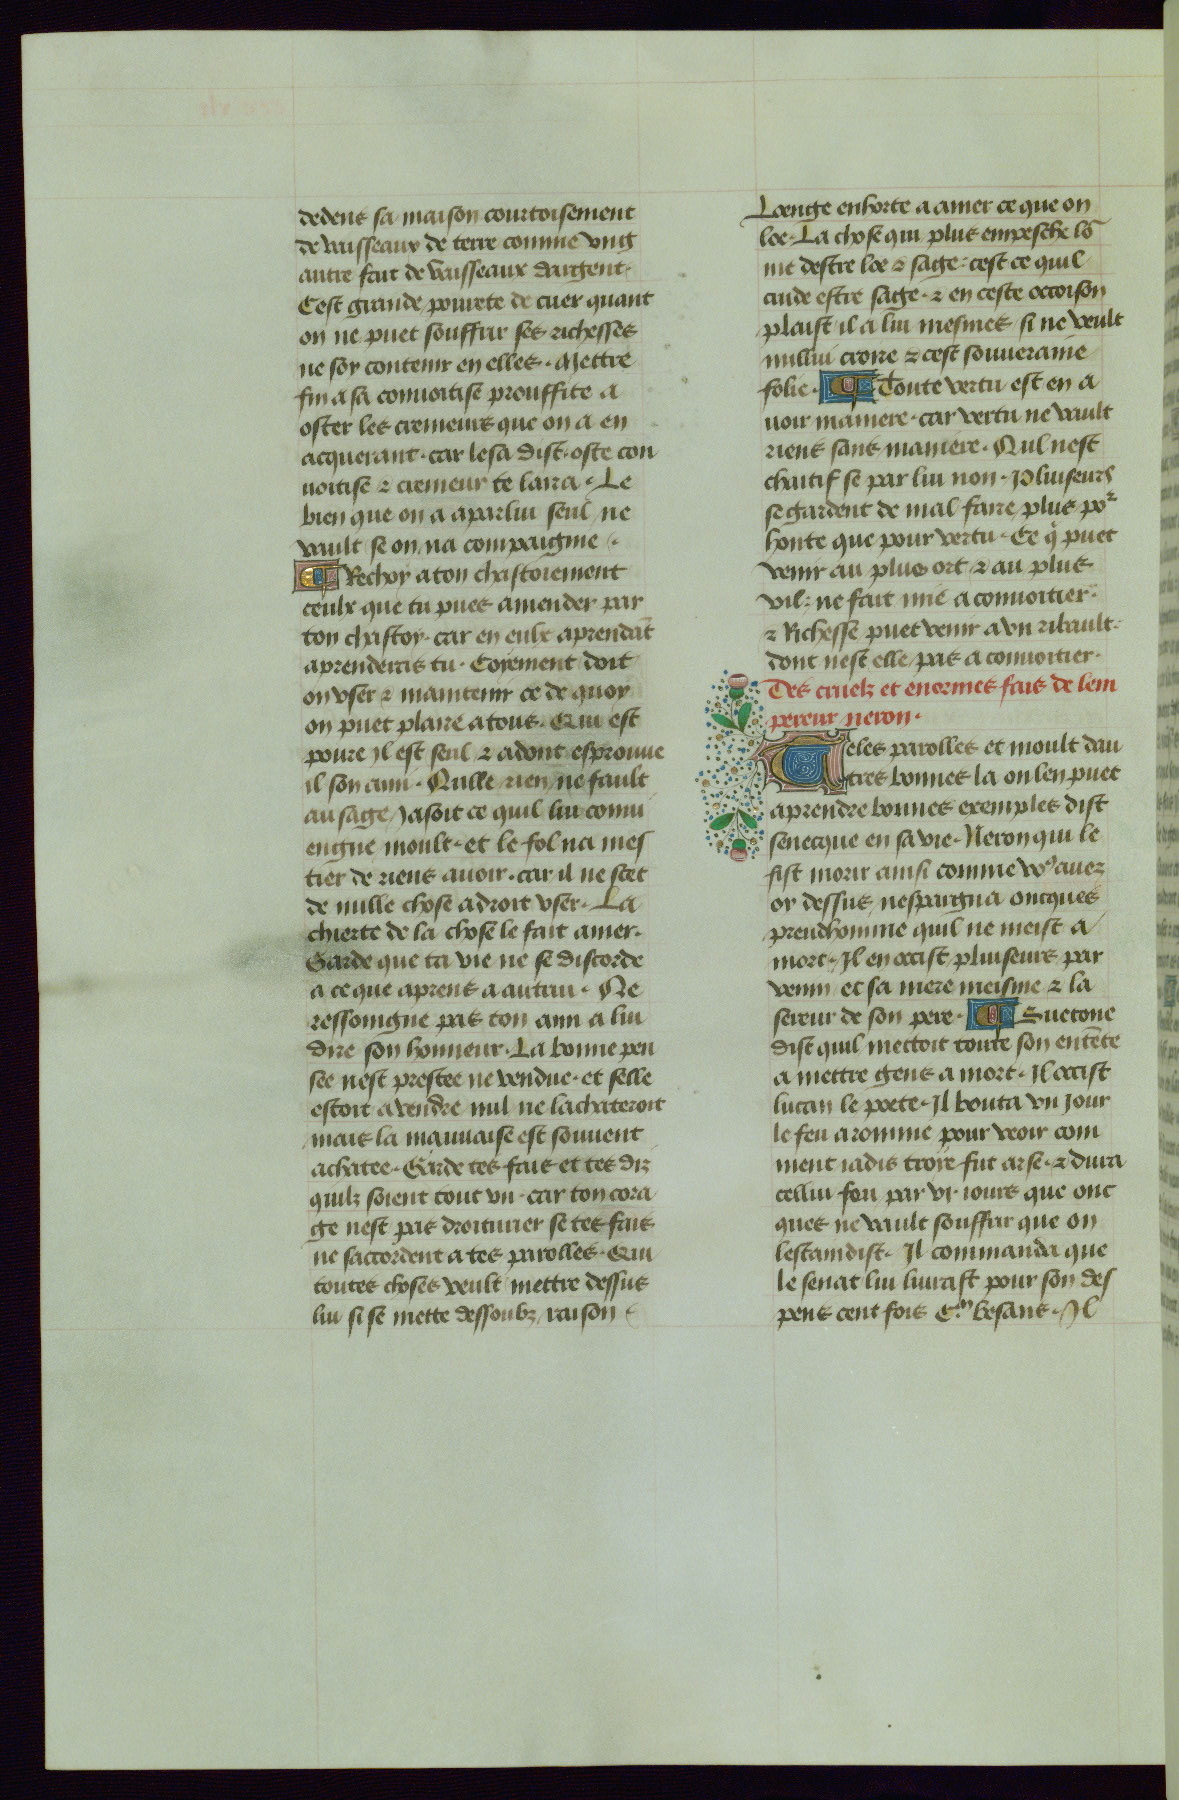 dedens sa maison courtoisement
de vaisseaux de terre comme vng
autre fait de vaisseaux dargent.
Cest grande pourete de cuer quant
on ne puet souffrir ses richesses
ne soy contenir en elles. Mettre
fin a sa conuoitise prouffite a
oster les cremeurs que on a en
acquerant. car lesa dist. oste con
uoitise & cremeur te laira. Le
bien que on a a par lui seul ne
vault se on na compaignie.
Rechoy a ton chastoiement
ceulx que tu pues amender par
ton chastoy. car en eulx aprendāt
aprenderas tu. Coyement doit
on vser & maintenir ce de quoy
on puet plaire a tous. Qui est
poure Il est seul & adont espreuue
il son ami. Nulle rien ne fault
au sage Jasoit ce quil lui conui
engne moult. et le fol na mes
tier de riens auoir. car il ne scet
de nulle chose a droit vser. La
chierte de la chose le fait amer.
Garde que ta vie ne se discorde
a ce que aprens a autrui. Ne
ressoingne pas ton ami a lui
dire son honneur. La bonne pen
see nest prestee ne vendue. et selle
estoit a vendre nul ne lachateroit
mais la mauuaise est souuent
achatee. Garde tes fais et tes diz
quilz soient tout vn. car ton cora
ge nest pas droiturier se tes fais
ne saccordent a tes parolles. Qui
toutes choses veult mettre dessus
lui si se mette dessoubz raison
Loenge enhorte a amer ce que on
loe. La chose qui plus empesche lō
me destre loe & sage. cest ce quil
cuide estre sage. & en ceste occoison
plaist il a lui mesmes si ne veult
nullui croire & cest souueraine
folie. Toute vertu est en a
uoir maniere. car vertu ne vault
riens sans maniere. Nul nest
chaitif se par lui non. Pluiseurs
se gardent de mal faire plus por
honte que pour vertu. Ce q̄ puet
venir au plus ort & au plus
vil. ne fait mie a conuoitier.
& Richesse puet venir a vn ribault.
dont nest elle pas a conuoitier.
Des cruelz et enormes fais de lem
pereur neron.
Teles parolles et moult dau
tres bonnes la on len puet
aprendre bonnes exemples dist
senecque en sa vie. Neron qui le
fist morir ainsi comme voꝰ auez
or dessus nespargna oncques
preudhomme quil ne meist a
mort. Il en occist pluiseurs par
venin et sa mere meisme & la
sereur de son pere. Suetone
dist quil mettoit toute son entēte
a mettre gens a mort. Il occist
lucan le poete. Il bouta vn Jour
le feu a romme pour veoir com
ment iadis troye fut arse. & dura
cellui feu par vi. iours que onc
ques ne vault souffrir que on
lestaindist. Il commanda que
le senat lui liurast pour son des
pens cent fois C.m besans. Il